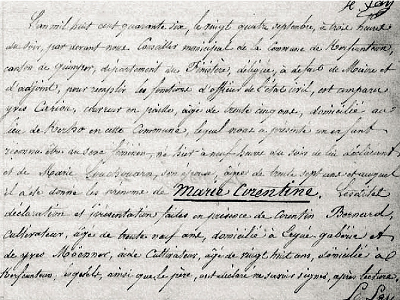 L'an mil huit cent quarante six, le vingt quatre septembre, à trois heures
du soir, par devant nous Conseiller municipal de la Commune de Kerfeunteun,
canton de Quimper, département du Finistère, délégué, à défaut de Maire et
d'adjoint, pour remplir les fonctions d'officier de l'état civil, est comparu
yves Cariou, âgé de trente cinq ans, domicilié au
lieu de en cette Commune, lequel nous a présenté un enfant
reconnu être du sexe féminin, né hier à neuf heures du soir de lui déclarant
et de Marie son épouse, âgée de trente sept ans et auquel
il a été donné les prénoms de Marie Corentine. Lesdites
déclaration et présentation faites en présence de Corentin Bernard,
cultivateur, âgé de trente neuf ans, domicilié à Ergué-gabéric et
de yves aide Cultivateur, âgé de vingt huit ans, domicilié à
Kerfeunteun, ainsi que le père, ont déclaré ne savoir signer, après lecture.